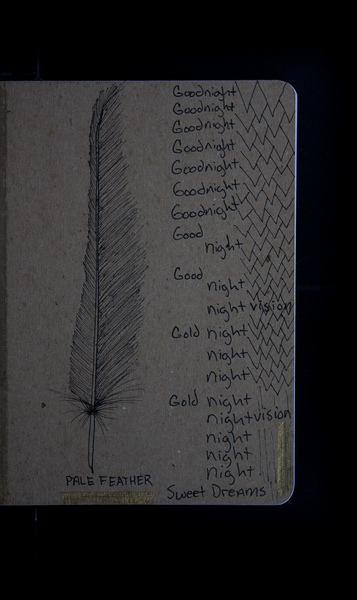 Goodnight
Goodnight
Goodnight
Goodnight
Goodnight
Goodnight
Goodnight
Good
night
Good
night
night vision
Gold night
night
night
Gold night
night vision
night
night
night
PALE FEATHER
Sweet Dreams